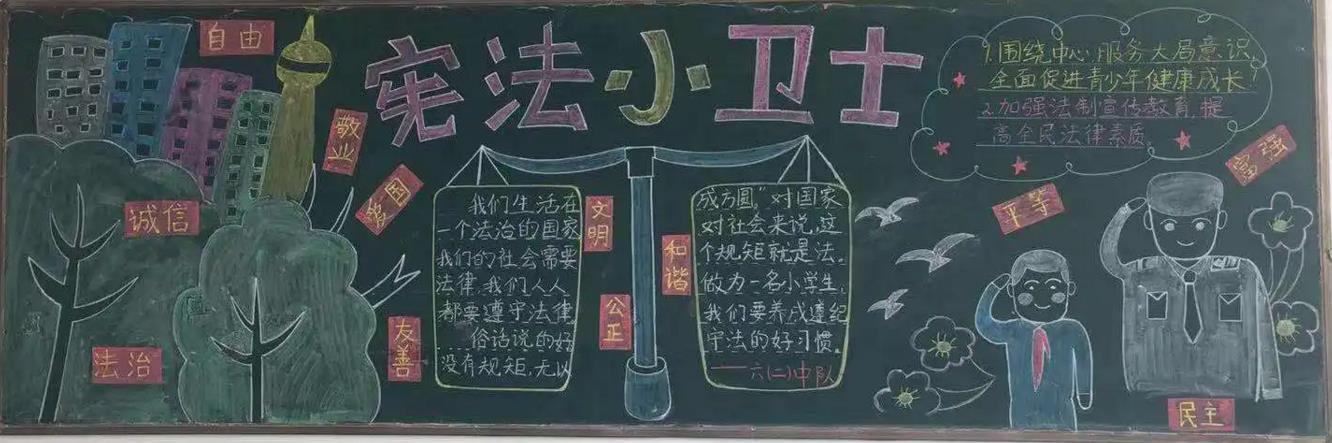 宪法小卫士
自由
敬业
爱国
诚信
法治
友善
我们生活在
一个法治的国家
我们的社会需要
法律,我们人人
都要遵守法律
俗话说的好
没有规矩,无以
文明
公正
和谐
成方圆"对国家
对社会来说,这
个规矩就是法。
做为一名小学生,
我们要养成遵纪
守法的好习惯。
——六(二)中队
1.围绕中心,服务大局意识
全面促进青少年健康成长!
2.加强法制宣传教育,提
高全民法律素质。
平等
富强
民主